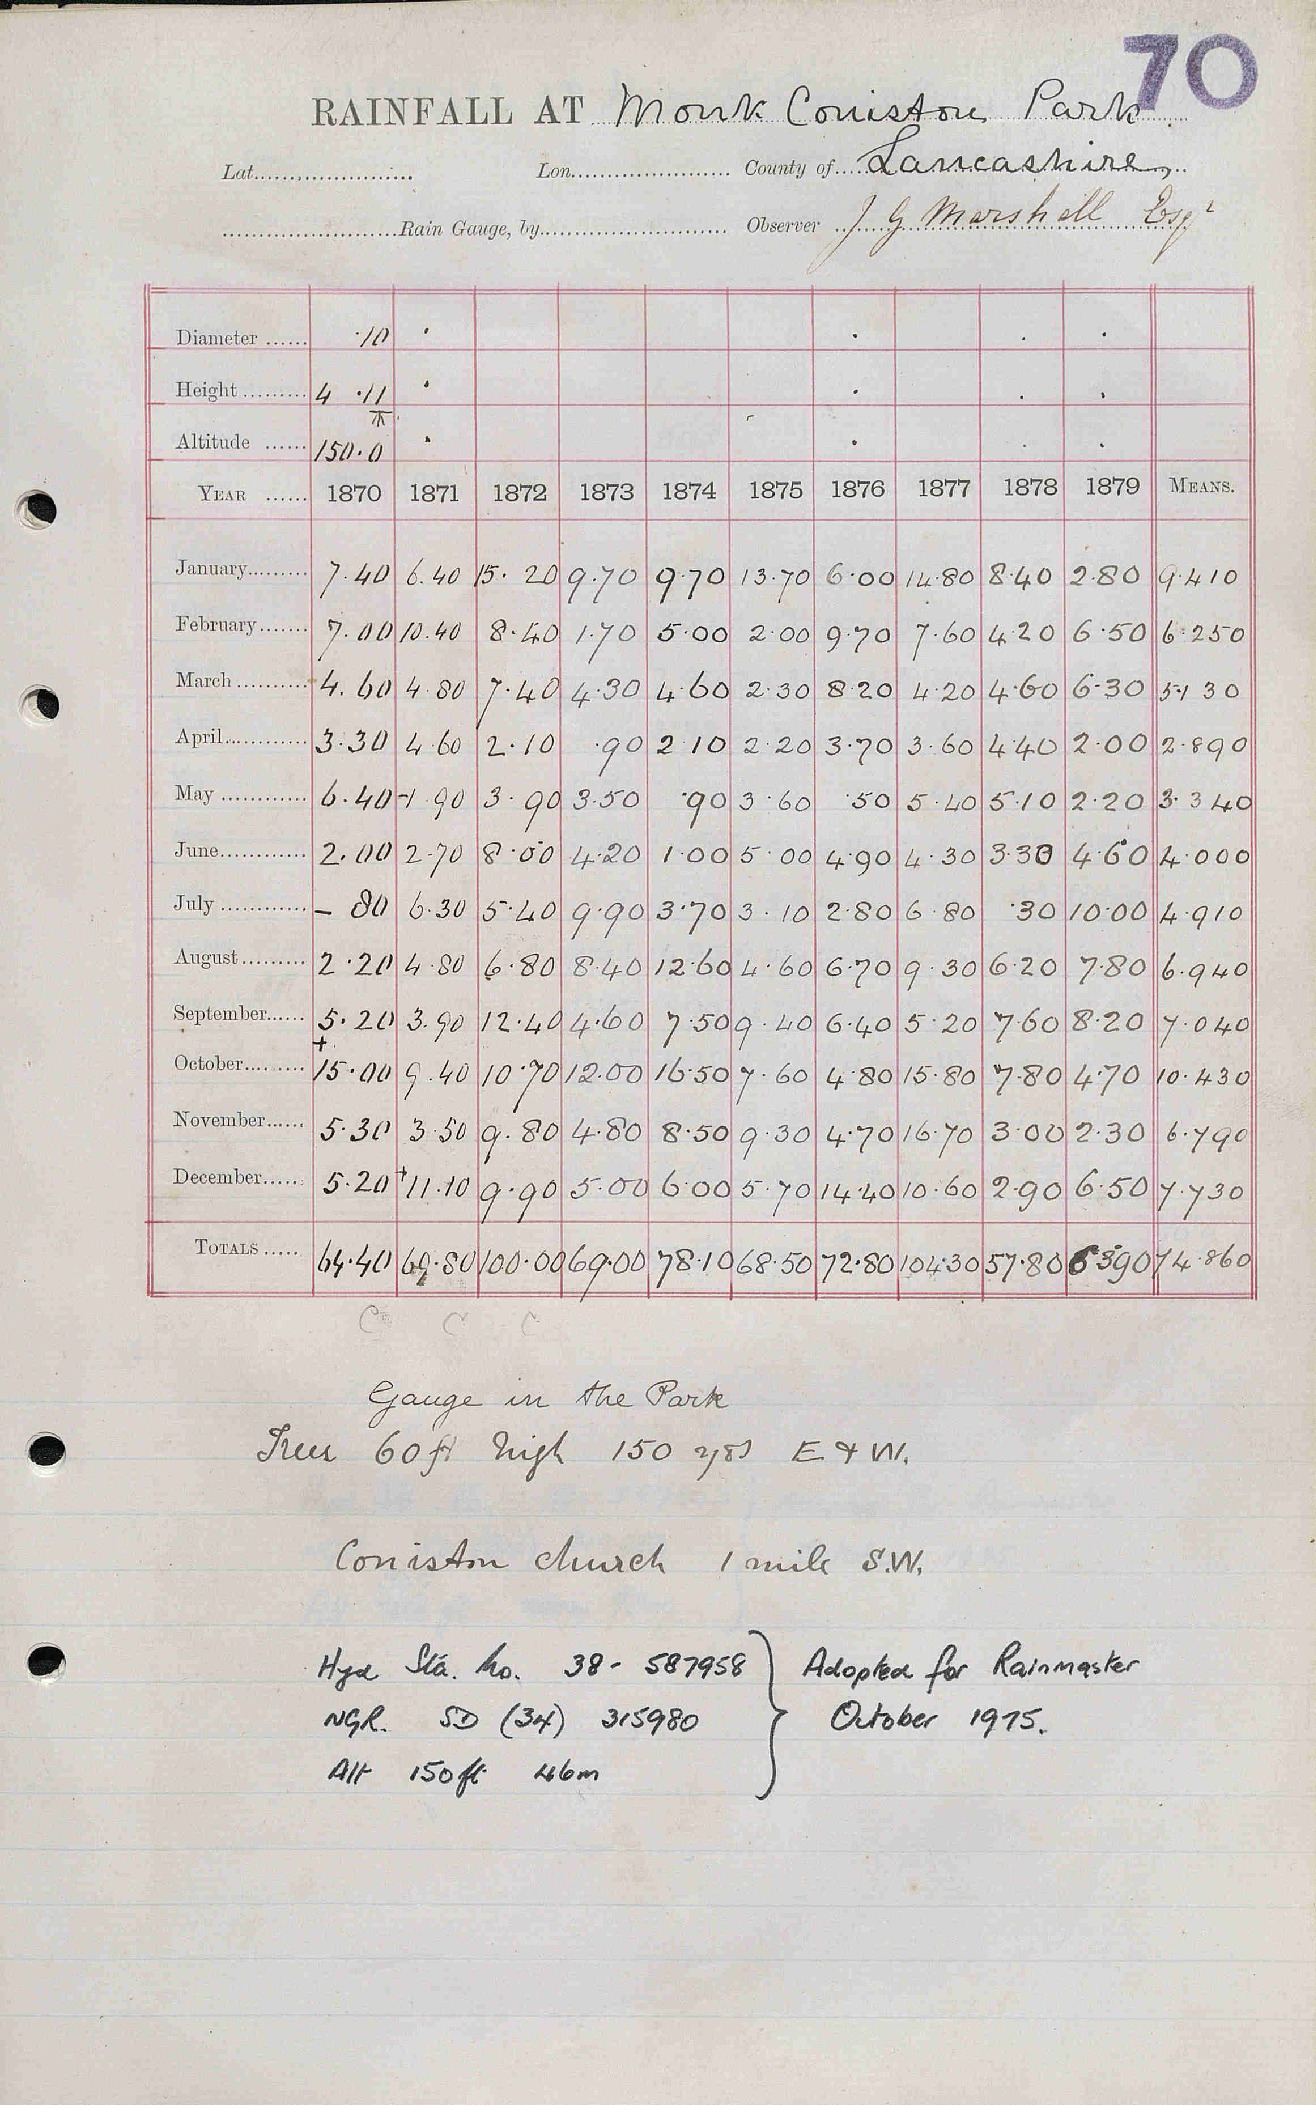 70
RAINFALL AT Monk Coniston Park.
Lat. Lon. County of Lancashire,
Rain Gauge, by Observer J G Marshall Esqr
Diameter ...... ·10 ·
Height ......... 4 ·11 ·
Altitude ...... 150·0 ·
YEAR ...... 1870 1871 1872 1873 1874 1875 1876 1877 1878 1879 MEANS.
January......... 7.40 6.40 15.20 9.70 9.70 13.70 6.00 14.80 8.40 2.80 9.410
February....... 7.00 10.40 8.40 1.70 5.00 2.00 9.70 7.60 4.20 6.50 6.250
March.......... 4.60 4.80 7.40 4.30 4.60 2.30 8.20 4.20 4.60 6.30 5.130
April............ 3.30 4.60 2.10 .90 2.10 2.20 3.70 3.60 4.40 2.00 2.890
May ............ 6.40 1.90 3.90 3.50 .90 3.60 .50 5.40 5.10 2.20 3.340
June............ 2.00 2.70 8.00 4.20 1.00 5.00 4.90 4.30 3.30 4.60 4.000
July ............ – 80 6.30 5.40 9.90 3.70 3.10 2.80 6.80 .30 10.00 4.910
August......... 2.20 4.80 6.80 8.40 12.60 4.60 6.70 9.30 6.20 7.80 6.940
September...... 5.20 3.90 12.40 4.60 7.50 9.40 6.40 5.20 7.60 8.20 7.040
October......... +15.00 9.40 10.70 12.00 16.50 7.60 4.80 15.80 7.80 4.70 10.430
November...... 5.30 3.50 9.80 4.80 8.50 9.30 4.70 16.70 3.00 2.30 6.790
December...... 5.20 +11.10 9.90 5.00 6.00 5.70 14.40 10.60 2.90 6.50 7.730
TOTALS ..... 64.40 69.80 100.00 69.00 78.10 68.50 72.80 104.30 57.80 63.90 74.860
C C C
Gauge in the Park
Trees 60 ft high 150 yds E & W.
Coniston church 1 mile S.W.
Hyd Sta. No. 38- 587958 } Adopted for Rainmaster
NGR. SD (34) 315980 October 1975.
Alt 150ft 46m